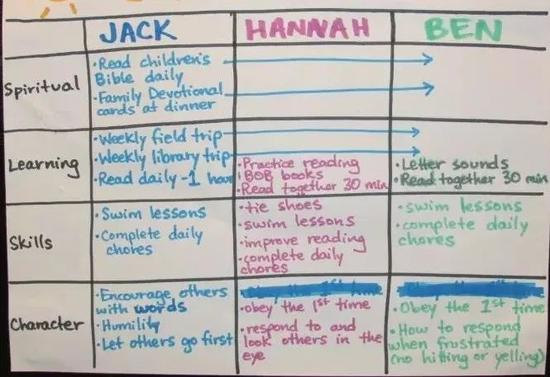 JACK
HANNAH
BEN
Spiritual
•Read children's
Bible daily
•Family Devotional
cards at dinner
Learning
•Weekly field trip
•Weekly library trip
•Read daily -1 hour
•Practice reading
•BOB books
•Read together 30 min
•Letter sounds
•Read together 30 min
Skills
•Swim lessons
•Complete daily
chores
•tie shoes
•swim lessons
•improve reading
•complete daily
chores
•swim lessons
•complete daily
chores
Character
•Encourage others
with words
•Humility
•Let others go first
•obey the 1st time
•respond to and
look others in the
eye
•Obey the 1st time
•How to respond
when frustrated
(no hitting or yelling)